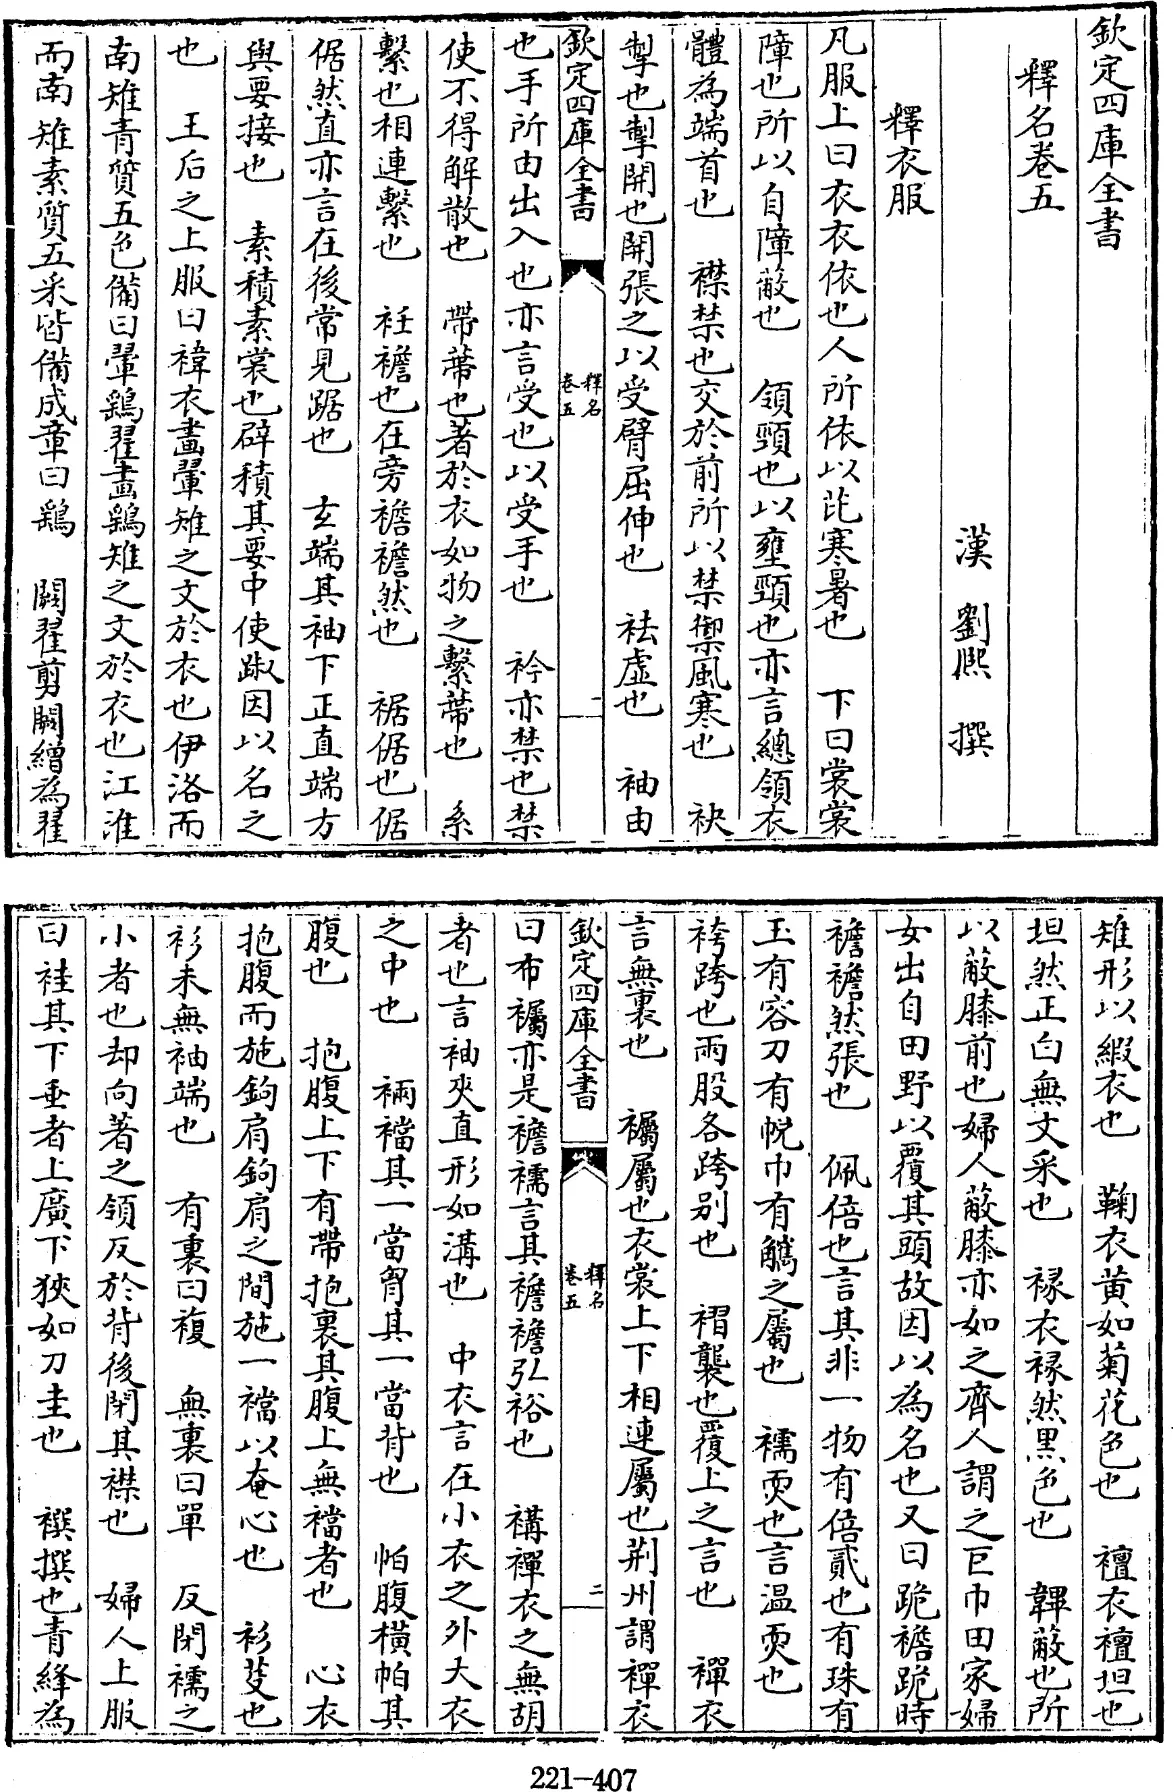 欽定四庫全書
釋名卷五
漢 劉熙 撰
釋衣服
凡服上曰衣衣依也人所依以芘寒暑也 下曰裳裳
障也所以自障蔽也 領頸也以壅頸也亦言總領衣
體為端首也 襟禁也交於前所以禁禦風寒也 袂
掣也掣開也開張之以受臂屈伸也 袪虛也 袖由
欽定四庫全書 釋名卷五 一
也手所由出入也亦言受也以受手也 衿亦禁也禁
使不得解散也 帶蔕也著於衣如物之繫蔕也 系
繫也相連繫也 衽襜也在旁襜襜然也 裾倨也倨
倨然直亦言在後常見踞也 玄端其袖下正直端方
與要接也 素積素裳也辟積其要中使踧因以名之
也 王后之上服曰褘衣畫翬雉之文於衣也伊洛而
南雉青質五色備曰翬鷂翟畫鷂雉之文於衣也江淮
而南雉素質五采皆備成章曰鷂 闕翟剪闕繒為翟
雉形以緞衣也 鞠衣黄如菊花色也 襢衣襢坦也
坦然正白無文采也 褖衣褖然黑色也 韠蔽也所
以蔽膝前也婦人蔽膝亦如之齊人謂之巨巾田家婦
女出自田野以覆其頭故因以為名也又曰跪襜跪時
襜襜然張也 佩倍也言其非一物有倍貳也有珠有
玉有容刀有帨巾有觿之屬也 襦耎也言温耎也
袴跨也兩股各跨别也 褶襲也覆上之言也 襌衣
言無裏也 襡屬也衣裳上下相連屬也荆州謂襌衣
欽定四庫全書 釋名卷五 二
曰布襡亦是襜襦言其襜襜弘裕也 褠襌衣之無胡
者也言袖夾直形如溝也 中衣言在小衣之外大衣
之中也 裲襠其一當胷其一當背也 帕腹橫帕其
腹也 抱腹上下有帶抱裹其腹上無襠者也 心衣
抱腹而施鉤肩鉤肩之間施一襠以奄心也 衫芟也
衫末無袖端也 有裏曰複 無裏曰單 反閉襦之
小者也却向著之領反於背後閉其襟也 婦人上服
曰袿其下垂者上廣下狹如刀圭也 襈撰也青絳為
221—407